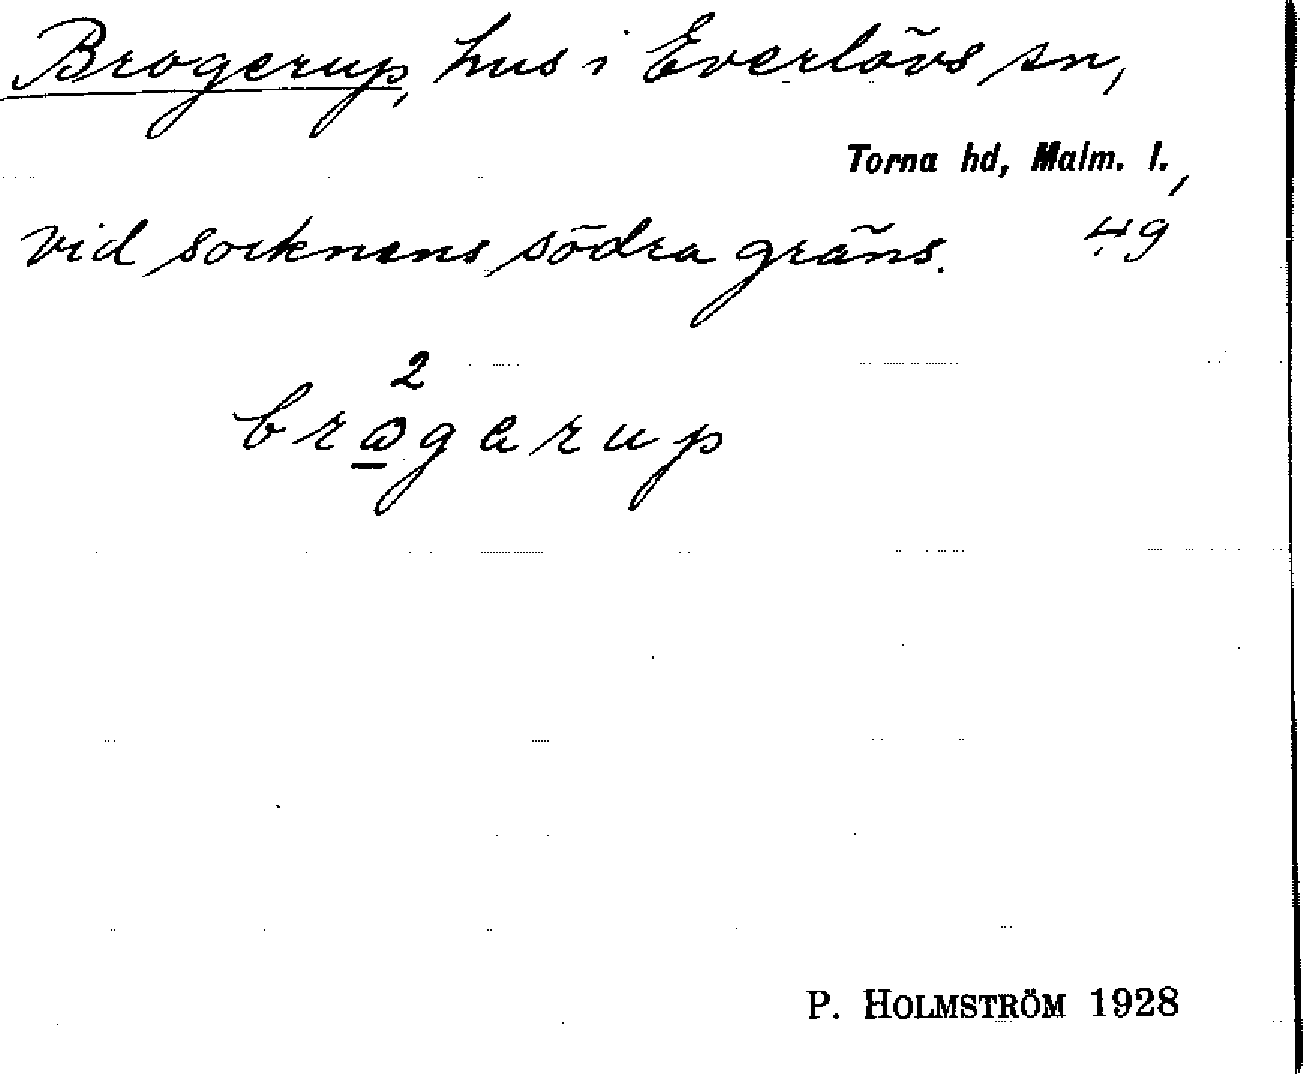 Brogerup, hus i Everlövs sn,
Torna hd, Malm. l.,
vid socknens södra gräns. 49
2
brogerup
P. HOLMSTRÖM 1928